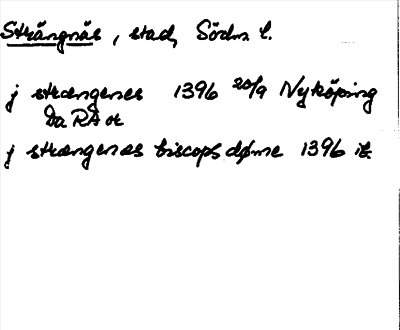 Strängnäs, stad, Södm l.
j strængenes 1396 20/9 Nyköping
Da RA or
j strængenæs biscops døme 1396 ib.